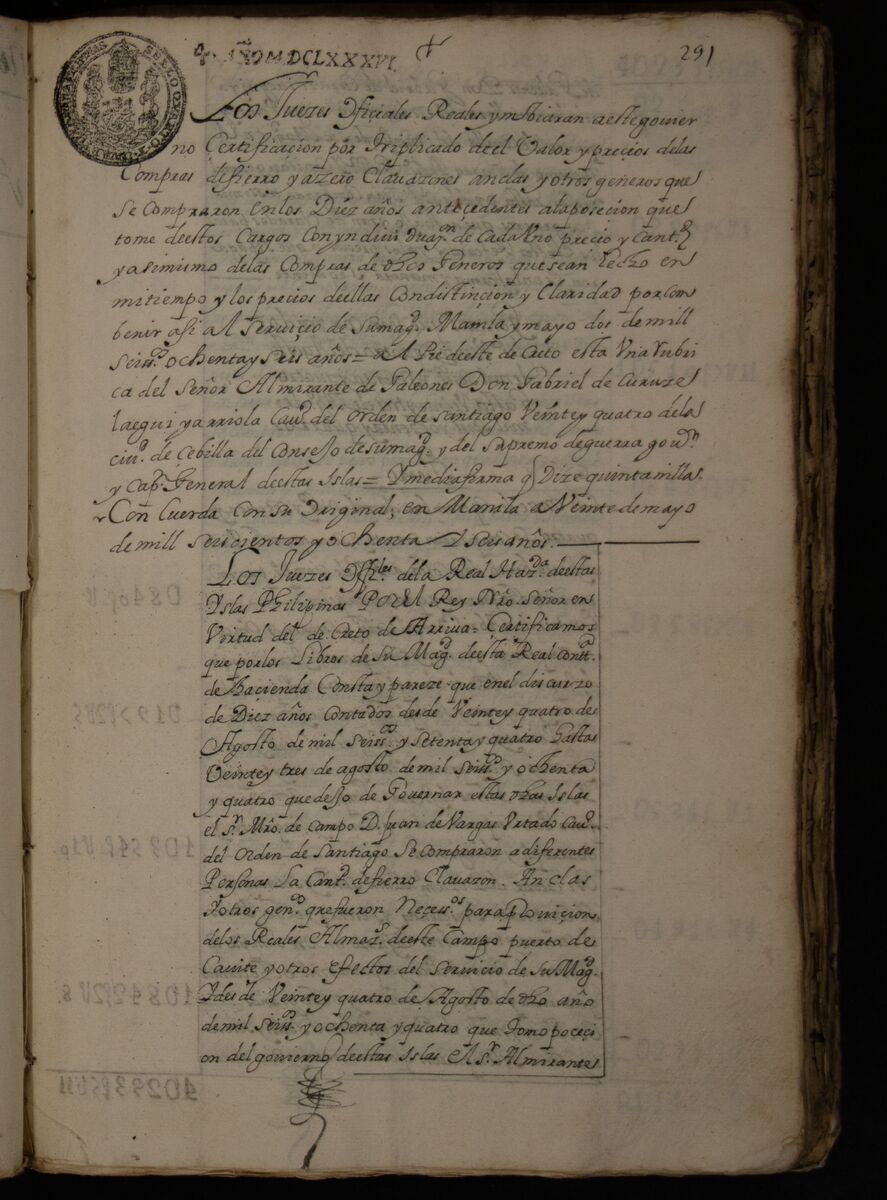 SELLO QVARTO
AÑO MDCLXXXVI
291
Los Juezes Ofiçiales Reales ymbiaran aestegouier
no Çertificaçion por triplicado deel Valor y preçios delas
Compras defierro y azero Clauazones anclas y otros generos que
se Compraron enlos Diez años anteçedentes alaposecion que
tome deestos Cargos Con yndiuidua.on de Cada Vno preçio y Cant.d
y asimismo delas Compras de dhos generos quesean hecho en
mi tiempo y los preçios deellas Condistinçion y Claridad porcom
benir asi al serviçio de sumag.d Manila y mayo dos de mill
seiss.os ochenta y seis años = al Pie deeste decreto esta Vna rubri
ca del Señor Almirante de Galeones Don Gabriel de Curuze
laegui yarriola Cau.o del orden de santiago Veinte y quatro dela
ciu.d de Çebilla del Consejo desumag.d y del supremo deguerra gou.or
y Cap.n General deestas Islas = Y mediafirma q Dize quintanilla
Con Cuerda con su Original, en Manila a Veinte demayo
de mill seiscientos y ochenta y seis años.
Los Juezes Offiles dela Real Haz.da deestas
Yslas Philipinas Por el Rey Nro. Señor en
Virtud del decreto de Arriua = Certificamos
que porlos Libros de su Mag.d deesta Real cont.a
de haçienda Consta y pareze que enel discurzo
de Diez años Contados desde Veinte y quatro de
Agosto de mil seiss.os y setenta y quatro hasta
Veinte y tres de agosto de mil seiss.os y ochenta
y quatro que dejo de Gouernar estas dhas Islas
el S.r Mro. de campo D. Juan de Vargas Vrtado Cau.o
del Orden de Santiago se compraron a diferentes
Personas La Cant.d defierro Clauazon Anclas
Yotros gen.os quefueron Neçess.os para prouiçion
delos Reales Almaz.s deeste Campo puerto de
Cauite y otros efectos del serviçio de su Mag.d
Y desde Veinte y quatro de Agosto de dho año
de mil seiss.os y ochenta y quatro que tomo poçeçi
on del gouierno deestas Islas el s.r Almirante